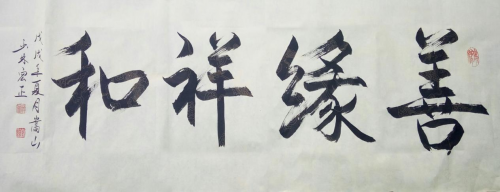 善缘祥和
戊戌年夏月嵩山